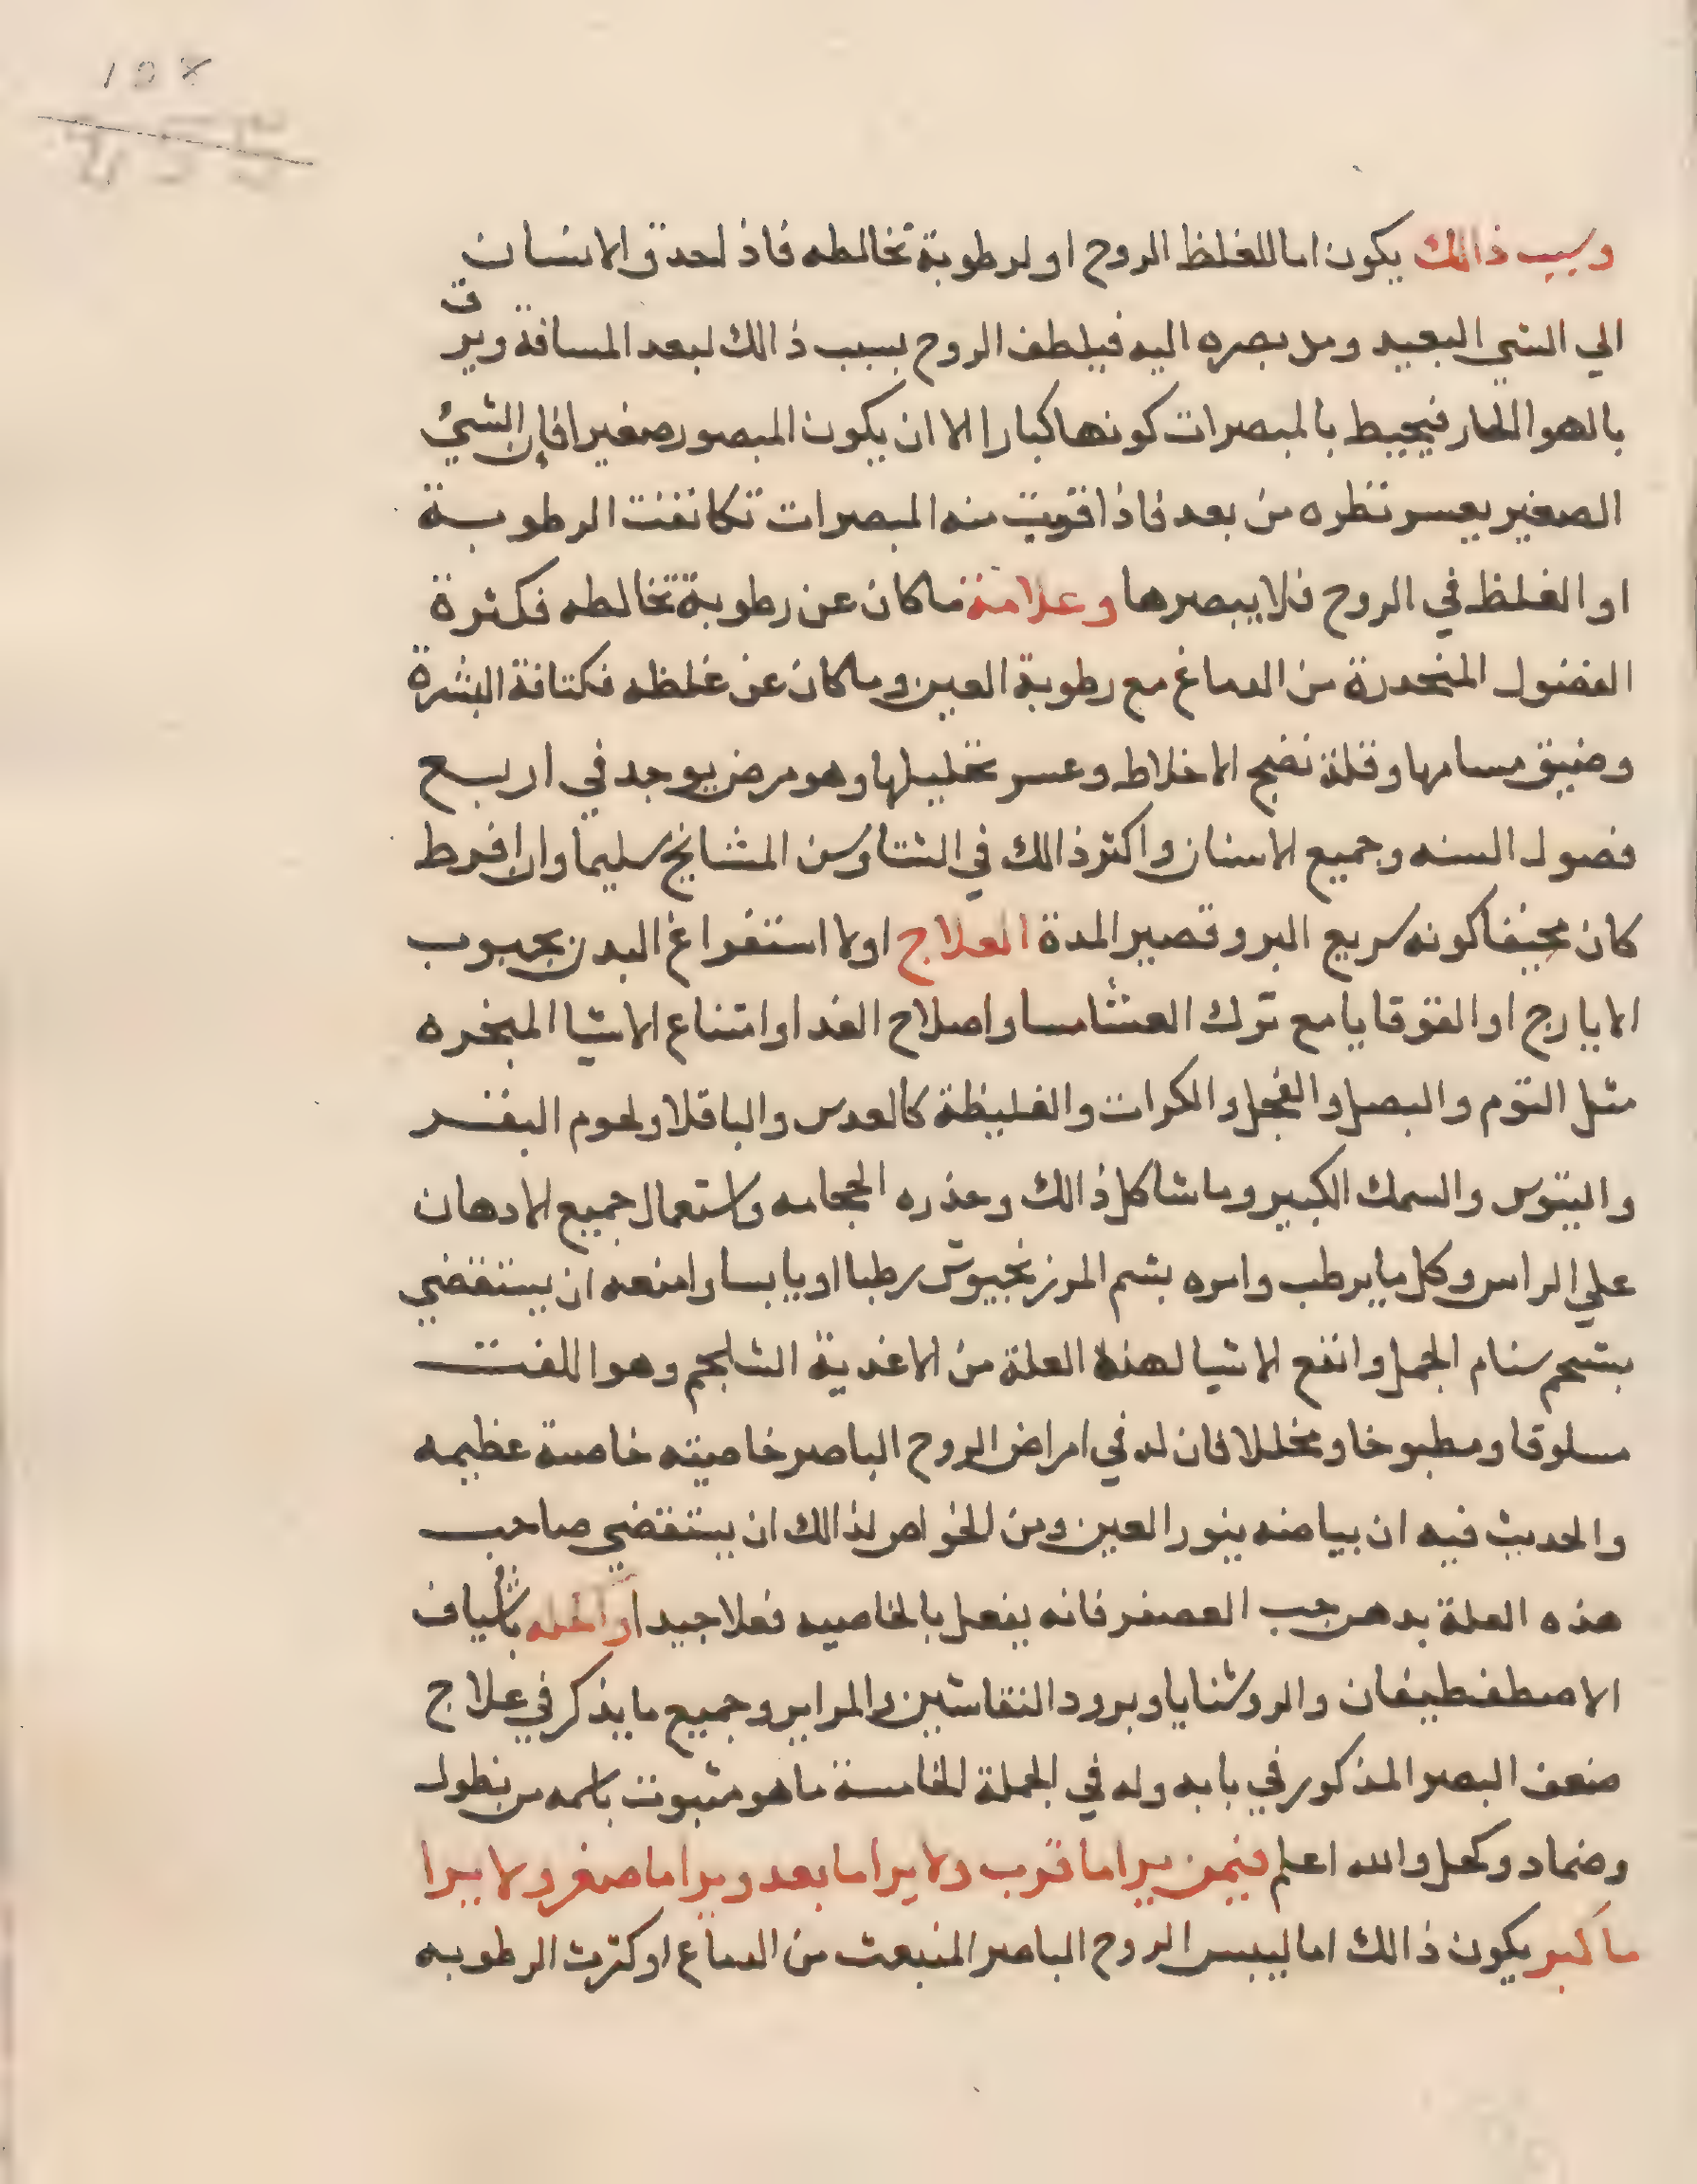 ١٥٨
وسبب ذالك يكون اما للغلظ الروح او لرطوبة تخالطه فاذا حدق الانسان
الي الشي البعيد ومد بصره اليه فيلطف الروح بسبب ذالك لبعد المسافة ويرق
بالهوا الحار فيحيط بالمبصرات كونها كبارا الا ان يكون المبصور صغيرا فإن الشيء
الصغير يعسر نظره من بعد فاذا قربت منه المبصرات تكاثفت الرطوبة
او الغلظ في الروح فلا يبصرها وعلامة ما كان عن رطوبة تخالطه فكثرة
الفضول المنحدرة من الدماغ مع رطوبة العين وما كان عن غلظه فكثافة البشرة
وضيق مسامها وقلة نضج الاخلاط وعسر تحليلها وهو مرض يوجد في اربع
فصول السنه وجميع الاسنان واكثر ذالك في الشتا وسن المشايخ سليما وان افرط
كان مخيفا كونه سريع البرو قصير المدة العلاج اولا استفراغ البدن بحبوب
الايارج او القوقايا مع ترك العشا مسا واصلاح الغدا وامتناع الاشيا المبخره
مثل التوم والبصل والفجل والكرات والغليظة كالعدس والباقلا ولحوم البقر
والتيوس والسمك الكبير وما شاكل ذالك وحذره الحجامه واستعمال جميع الادهان
علي الراس وكل ما يرطب وامره بشم المرزنجوش رطبا او يابسا وامنعه ان يستقضي
بشحم سنام الجمل وانفع الاشيا لهذه العلة من الاغذية الشلجم وهو اللفت
مسلوقا ومطبوخا ومخللا فان له في امراض الروح الباصر خاصيته خاصة عظيمه
والحديث فيه ان بياضه ينور العين ومن الخواص لذالك ان يستقضي صاحب
هذه العلة بدهن حب العصفر فانه يفعل بالخاصيه فعلا جيدا واكحله باشياف
الاصطفطيفان والروشنايا وبرود النقاشين والمراير وجميع ما يذكر في علاج
ضعف البصر المذكور في بابه وله في الجملة الخامسة ما هو مثبوت باسمه من نطول
وضماد وكحل والله اعلم فيمن يرا ما قرب ولا يرا ما بعد ويرا ما صغر ولا يرا
ما كبر يكون ذالك اما ليبس الروح الباصر المنبعث من الدماغ او كثرت الرطوبه